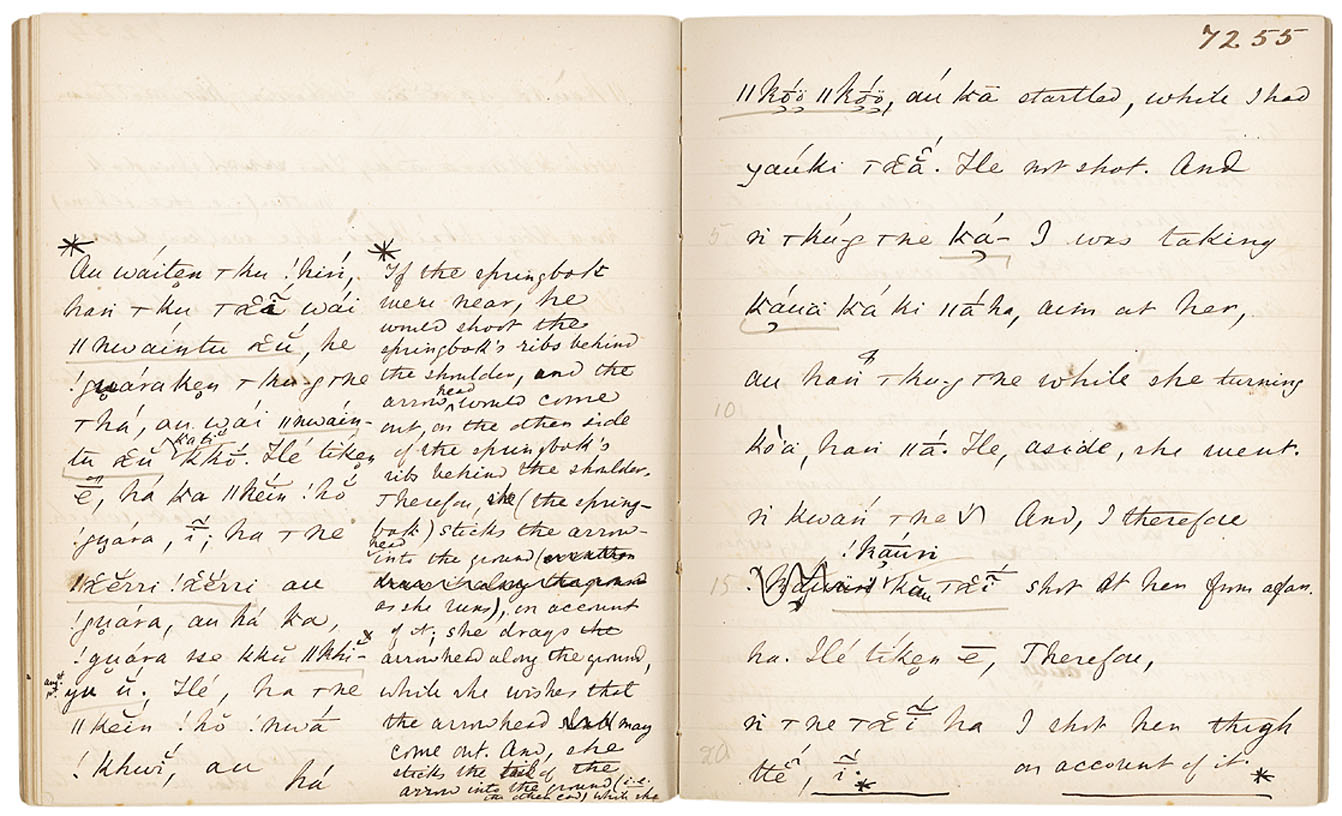 Au wáitẹn ⊤ku !hiń,
haṅ ⊤ku ⊤χĩ wái
||nwáiṅtu χŭ, he
!gwáraken ⊤ku-g ⊤ne
⊤há, au wái ||nwáiṅ-
tu χŭ kabi kkŏ. Hé tíkẹn
ē, há ka ||kĕiṅ !hŏ
!gwára, ĩ; ha ⊤ne
!χĕrri !χĕrri au
!gwára, au há ka,
!gwára sse kkŭ ||khí-
yu ŭ. Hé, ha ⊤ne
||kĕin !hŏ !nwá
!khwĭ, au há
If the springbok
were near, he
would shoot the
springbok's ribs behind
the shoulder, and the
arrow head would come
out, on the other side
of the springbok's
ribs behind the shoulder.
Therefore, she (the spring-
bok) sticks the arrow-
head into the ground
as she runs), on account
of it; she drags the
arrowhead along the ground,
while she wishes that
the arrowhead may
come out. And, she
sticks the tail of the
arrow into the ground (i.e.
the other end) while she
7255
||kóö ||kóö, aú kā startled, while I had
yaúki ⊤χã. He not shot. And
ṅ ⊤kú-g ⊤ne ká- I was taking
káuä ká ki ||á ha, aim at her,
au haṅ ⊤ku-g ⊤ne while she turning
kóä, haṅ ||á. He, aside, she went.
ṅ kwaṅ ⊤ne And, I therefore
!kāuri
kau ⊤χĩ shot at her from afar.
ha. Hé tíkẹn ē, Therefore,
ṅ ⊤ne ⊤χĩ ha I shot her thigh
ttĕ, ĩ. on account of it.
5
10
15
20